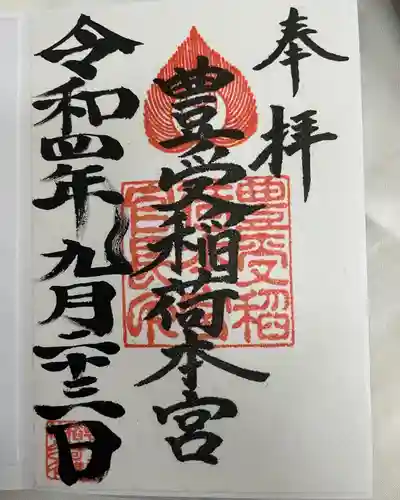 奉拝
豊受稲荷本宮
令和四年九月二十三日